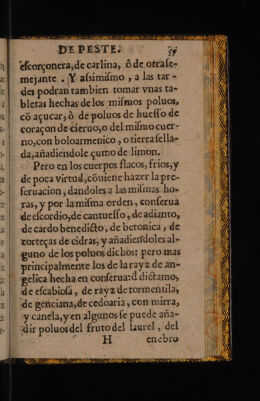 DE PESTE. 57
escorçonera, de carlina, ô de otra se-
mejante . Y assimismo , a las tar-
des podran tambien tomar vnas ta-
bletas hechas de los mismos poluos,
cõ açucar, ò de poluos de huesso de
coraçon de cieruo, o del mismo cuer-
no, con boloarmenico , o tierra sella-
da, añadiendole çumo de limon.
Pero en los cuerpos flacos, frios, y
de poca virtud, cõuiene hazer la pre-
seruacion, dandoles a las mismas ho-
ras, y por la misma orden, conserua
de escordio, de cantuesso , de adianto,
de cardo benedicto, de betonica , de
corteças de cidras, y añadiẽdoles al-
guno de los poluos dichos: pero mas
principalmente los de la rayz de an-
gelica hecha en conserua: ò dictamo,
de escabiosa , de rayz de tormentila,
de genciana, de cedoaria, con mirra,
y canela, y en algunos se puede aña-
dir poluos del fruto del laurel , del
H enebro